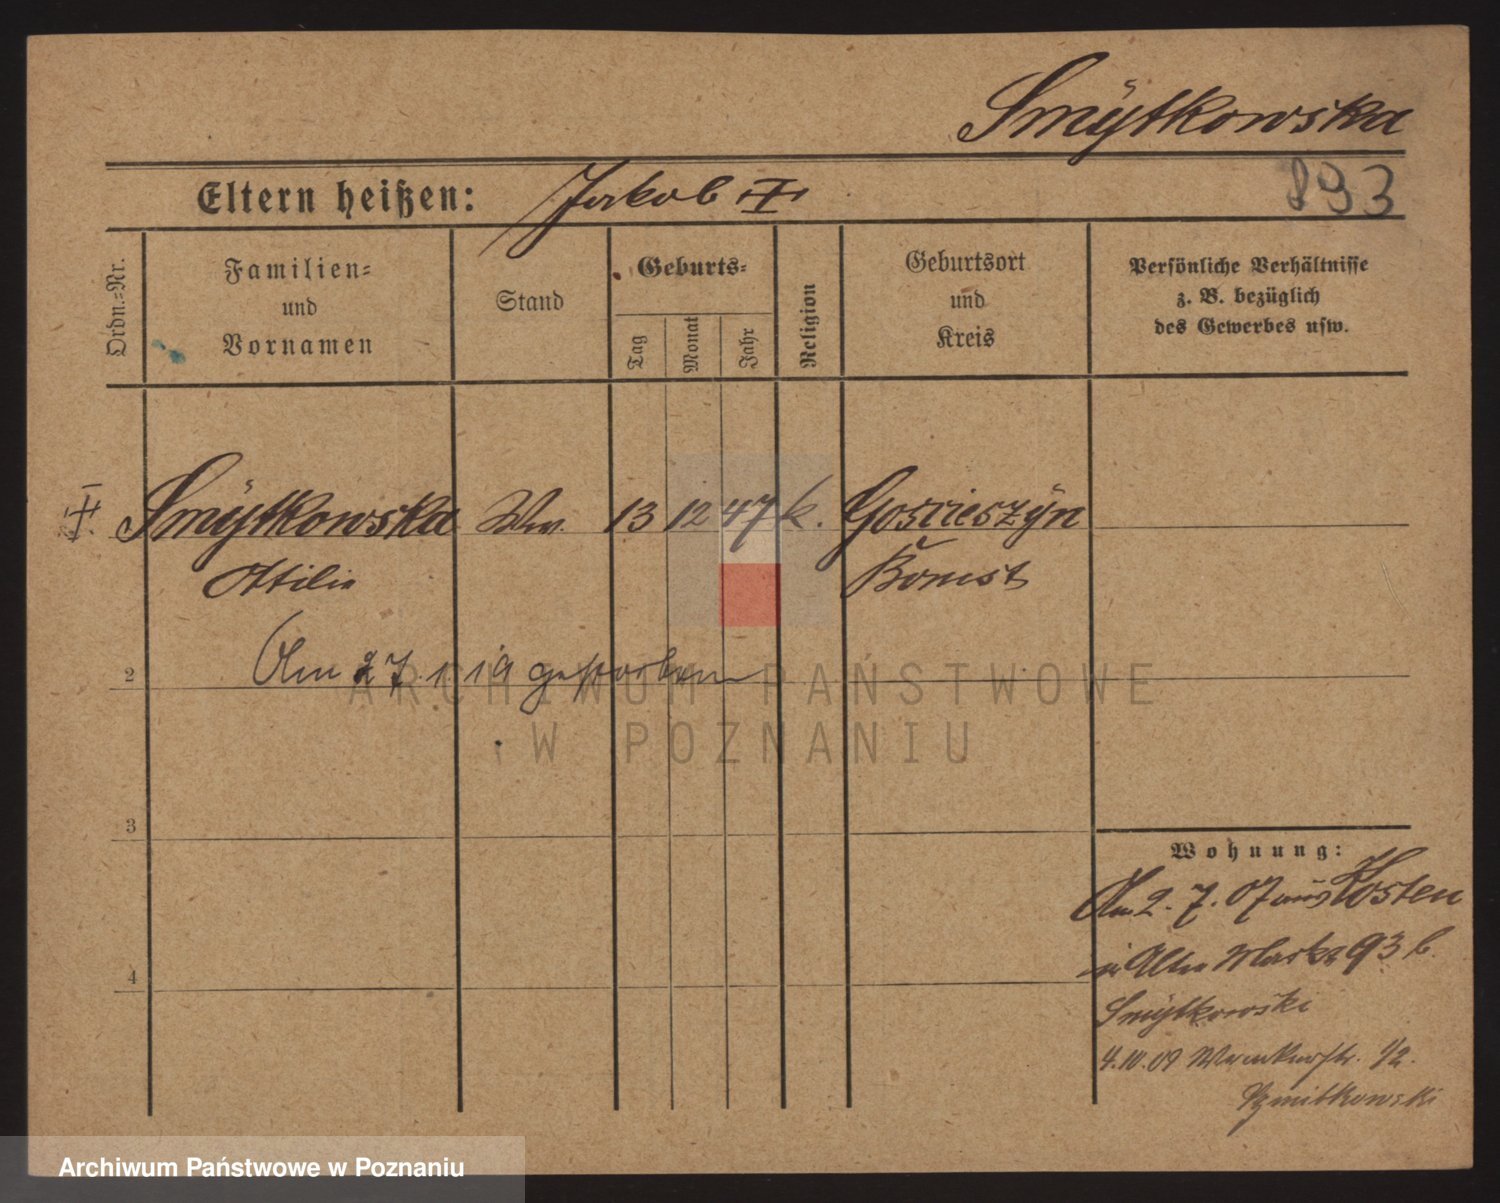 Smytkowska
893
Eltern heißen: Jakob
Ordn.=Nr.
Familien=
und
Vornamen
Stand
Geburts=
Tag
Monat
Jahr
Religion
Geburtsort
und
Kreis
Persönliche Verhältnisse
z. B. bezüglich
des Gewerbes usw.
Smytkowska Ww. 13 12 47 k. Goscieszyn
Ottilie Bomst
Am 27. 1. 19 gestorben
2
3
4
Wohnung:
Am 2. 7. 07 aus Kosten
in Alter Markt 93 b.
Smytkowski
4.10.09 1/2.
Szmitkowski
ARCHIWUM PAŃSTWOWE
W POZNANIU
Archiwum Państwowe w Poznaniu